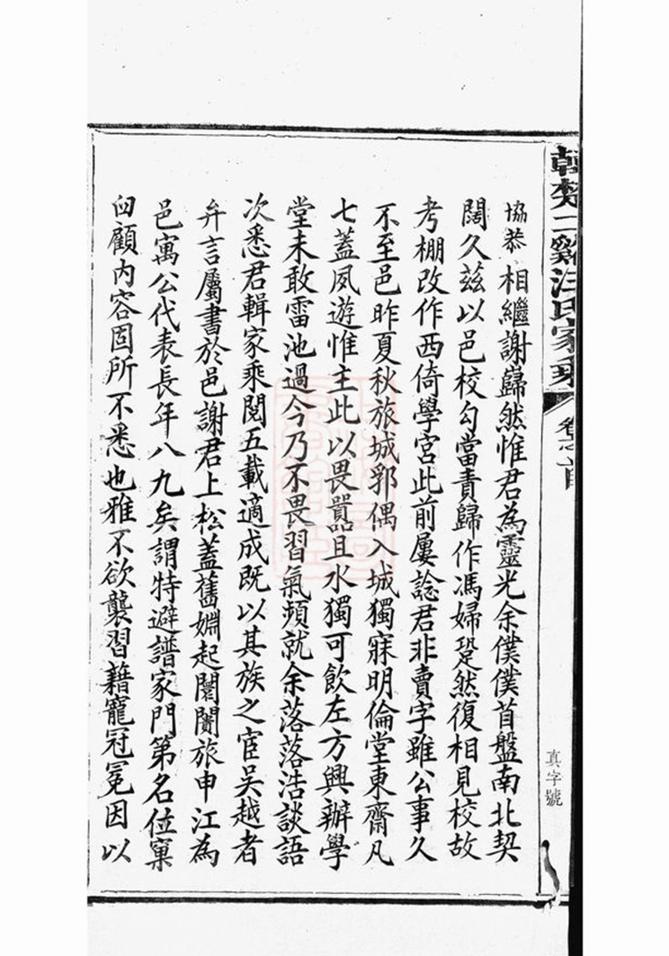 韓楚二谿汪氏家乘 卷之首
真字號
協恭相繼謝巋然惟君為靈光余僕僕苜盤南北契
闊久茲以邑校勾當責歸作馮婦跫然復相見校故
考棚改作西倚學宮此前屢諗君非賣字雖公事久
不至邑昨夏秋旅城郭偶入城獨寐明倫堂東齋凡
七蓋夙遊惟主此以畏囂且水獨可飲左方興辦學
堂未敢雷池過今乃不畏習氣頻就余落落浩談語
次悉君輯家乘閱五載適成既以其族之宦吳越者
弁言屬書於邑謝君上松蓋舊姻起闤闠旅申江為
邑寓公代表長年八九矣謂特避譜家門第名位窠
臼顧內容固所不悉也雅不欲襲習藉寵冠冕因以